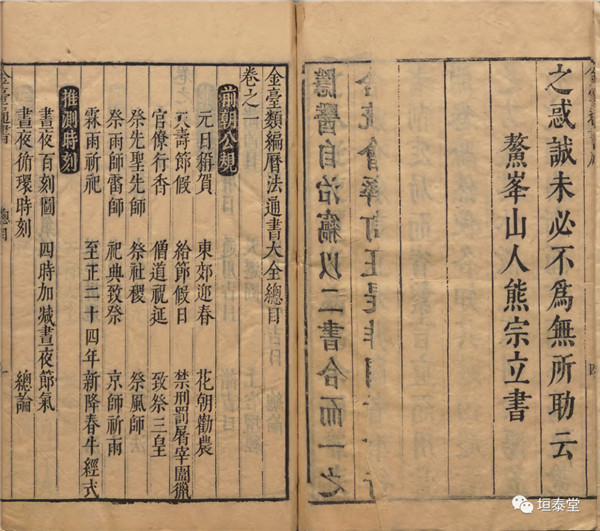 之惑誠未必不爲無所助云
鰲峯山人熊宗立書
金臺類編曆法通書大全總目
卷之一
前朝公規
元日 賀 東郊迎春 花朝勸農
天壽節假 給節假日 禁刑罰屠宰圍獵
官僚行香 僧道祝延 致祭三皇
祭先聖先師 祭社稷 祭風師
祭雨師雷師 祀典致祭 京師祈雨
霖雨祈祀 至正二十四年新降春牛經式
推測時刻
晝夜百刻圖 四時加减晝夜節氣
晝夜循環時刻 總論
金臺通書 總目
垣泰堂